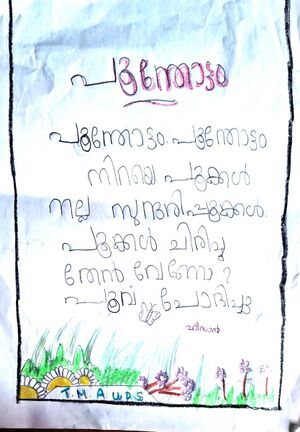 പൂന്തോട്ടം
പൂന്തോട്ടം പൂന്തോട്ടം
നിറയെ പൂക്കൾ
നല്ല സുന്ദരിപ്പൂക്കൾ.
പൂക്കൾ ചിരിച്ചു
തേൻ വേണോ ?
പൂവ് ചോദിച്ചു
ഹസാൻ
T.M.A U.P.S